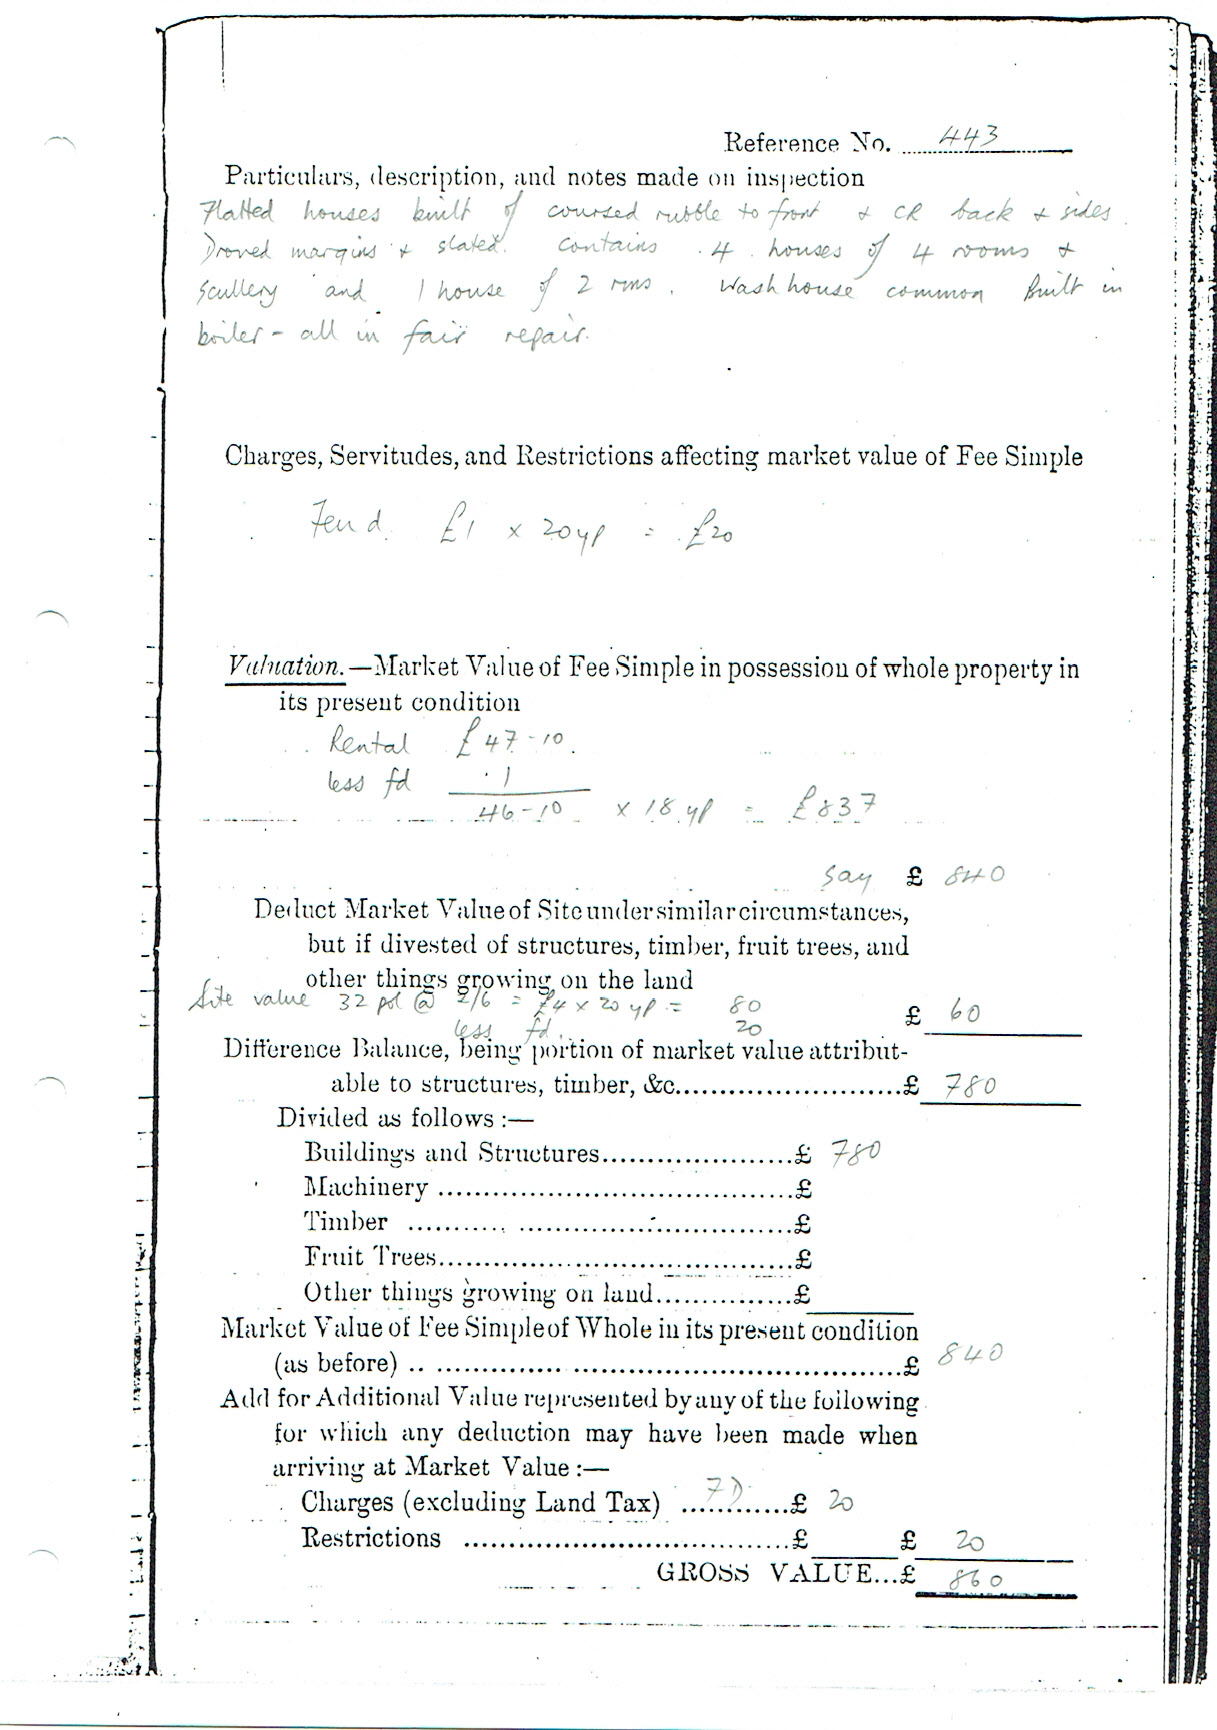 Reference No. 443
Particulars, description, and notes made on inspection
Flatted houses built of coursed rubble to front & CR back & sides.
Droved margins & slated. Contains 4 houses of 4 rooms &
scullery and 1 house of 2 rms. Wash house common Built in
boiler - all in fair repair.
Charges, Servitudes, and Restrictions affecting market value of Fee Simple
Feu d. £1 x 20 yp = £20
Valuation.—Market Value of Fee Simple in possession of whole property in
its present condition
Rental £47-10.
less fd 1
46-10 x 18 yp = £837
say £ 840
Deduct Market Value of Site under similar circumstances,
but if divested of structures, timber, fruit trees, and
other things growing on the land
Site value 32 pol @ 2/6 = £4 x 20 yp = 80
£ 60
less fd. 20
Difference Balance, being portion of market value attribut-
able to structures, timber, &c..............................£ 780
Divided as follows :—
Buildings and Structures.....................£ 780
Machinery .......................................£
Timber ..........................................£
Fruit Trees.......................................£
Other things growing on land...............£
Market Value of Fee Simple of Whole in its present condition
(as before) .. ....................................................£ 840
Add for Additional Value represented by any of the following
for which any deduction may have been made when
arriving at Market Value :—
Charges (excluding Land Tax) ....FD.....£ 20
Restrictions .......................................£ £ 20
GROSS VALUE...£ 860